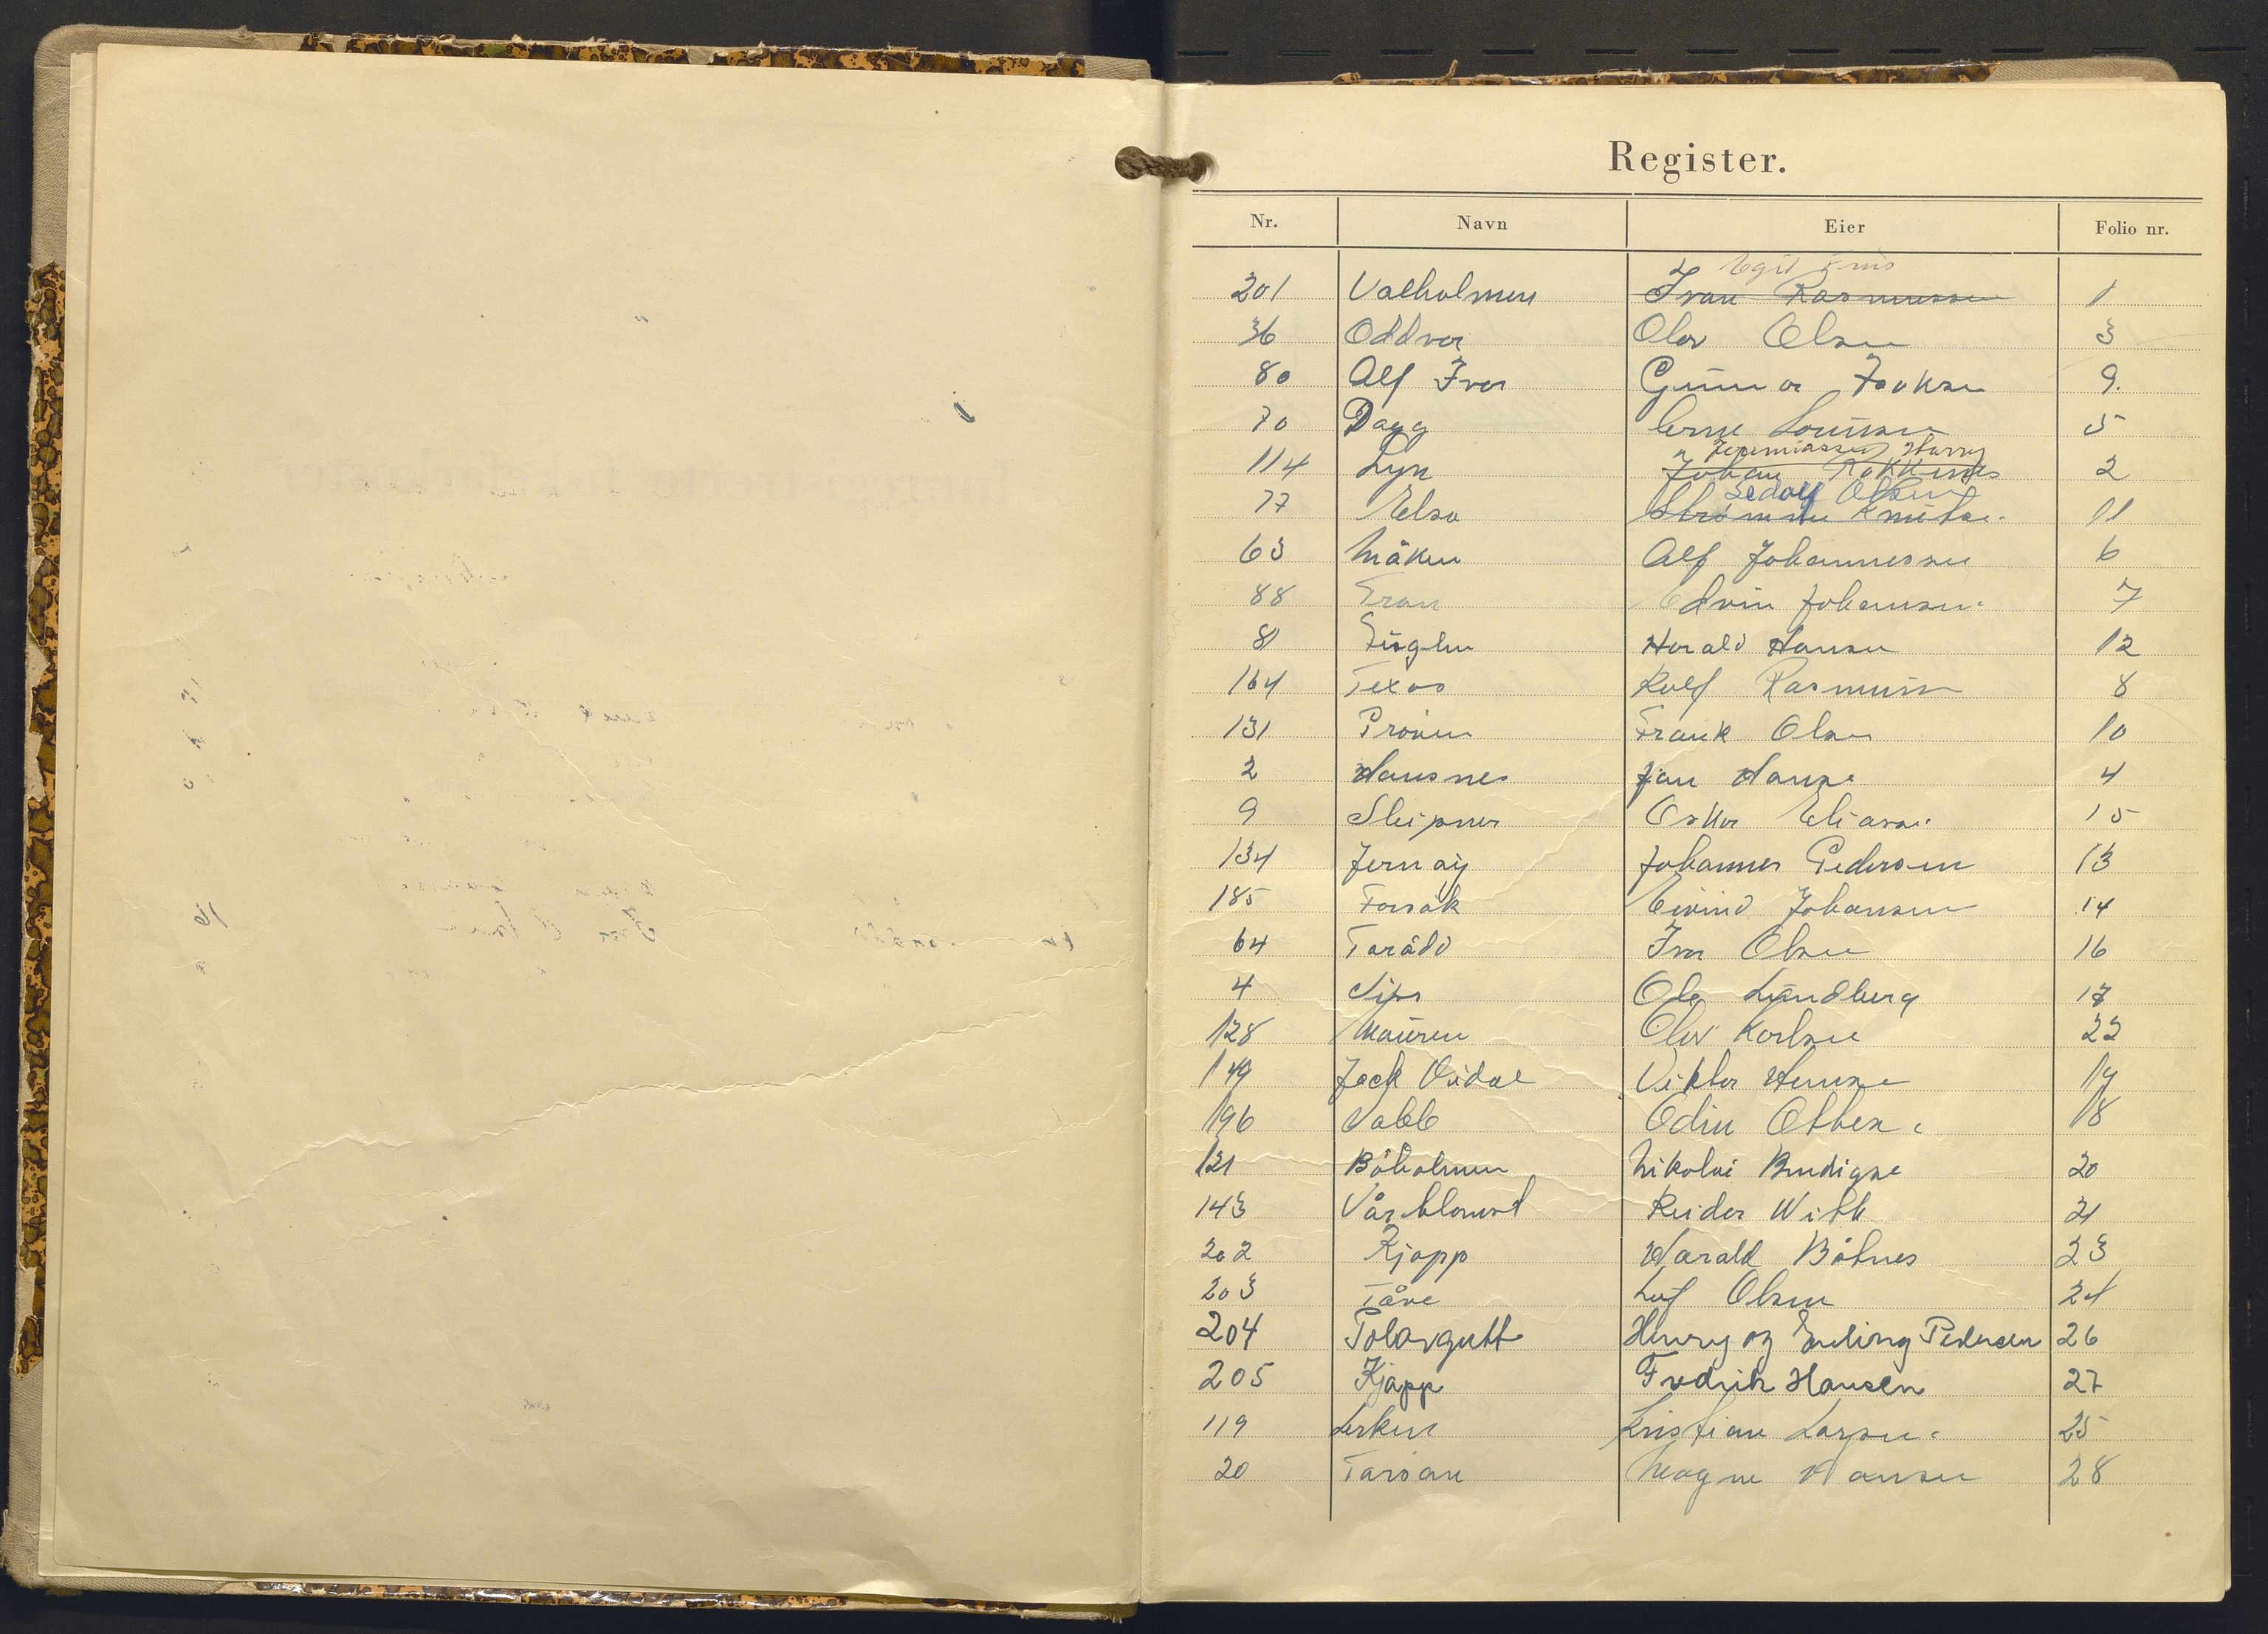 Register.
Nr. Navn Eier Folio nr.
Egil
201 Valholmen Ivan Rasmussen 1
36 Oddvar Olav Olsen 3
80 Alf Ivar Gunnar 9.
70 Dagg Arne 5
Jeremiassen, Harry
114 Lyn Johan 2
Sedolf Olsen
77 Elsa Knutsen 11
63 Måken Alf Johannessen 6
88 Fram Edvin Johansen. 7
81 Fuglen Harald Hansen 12
164 Texas Rolf Rasmussen 8
131 Prøven Frank Olsen 10
2 Hausnes Jan Hansen 4
9 Sleipner Oskar Eliasen. 15
134 Jernøy Johannes Pedersen 13
185 Forsøk Eivind Johansen 14
64 Tarådd Ivar Olsen 16
4 Sips Ole Lundberg 17
128 Mauren Olav Karlsen 22
149 Jack Vidal Viktor Hansen 19
196 Odin 18
121 Båholmen Nikolai 20
143 Vårblomst Reidar With 21
202 Kjapp Harald Båtnes 23
203 Tåve Leif Olsen 24
204 Polargutt Henry og Erling Pedersen 26
205 Kjapp Fredrik Hansen 27
119 Lerken Kristian Larsen. 25
20 Tarsan Magne Hansen 28